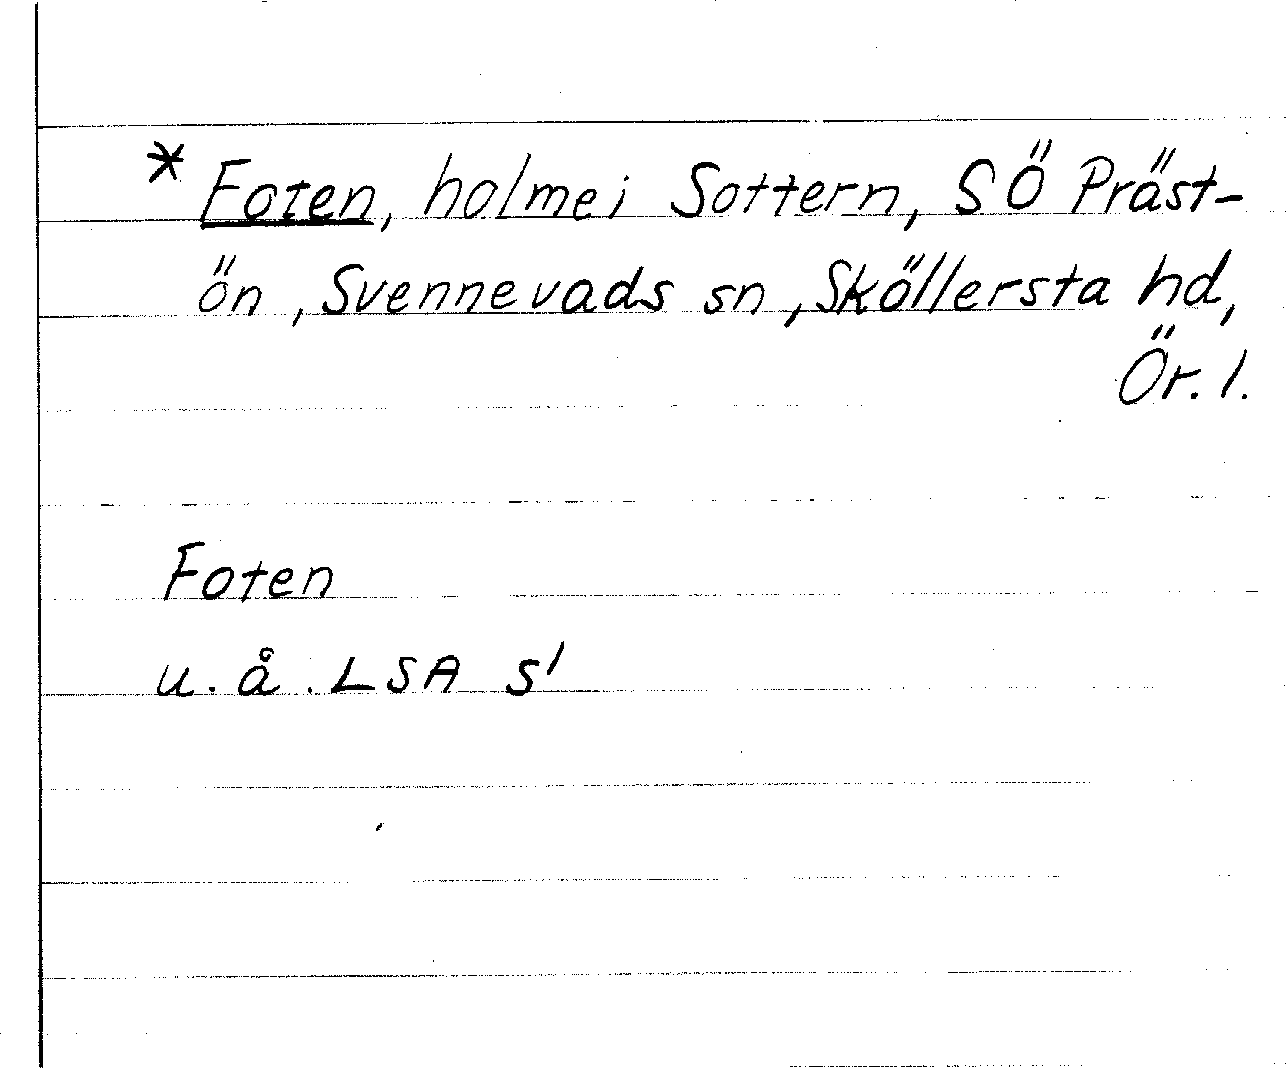 * Foten, holme i Sottern, SÖ Präst-
ön, Svennevads sn, Sköllersta hd,
Ör. l.
Foten
u. å. LSA s1